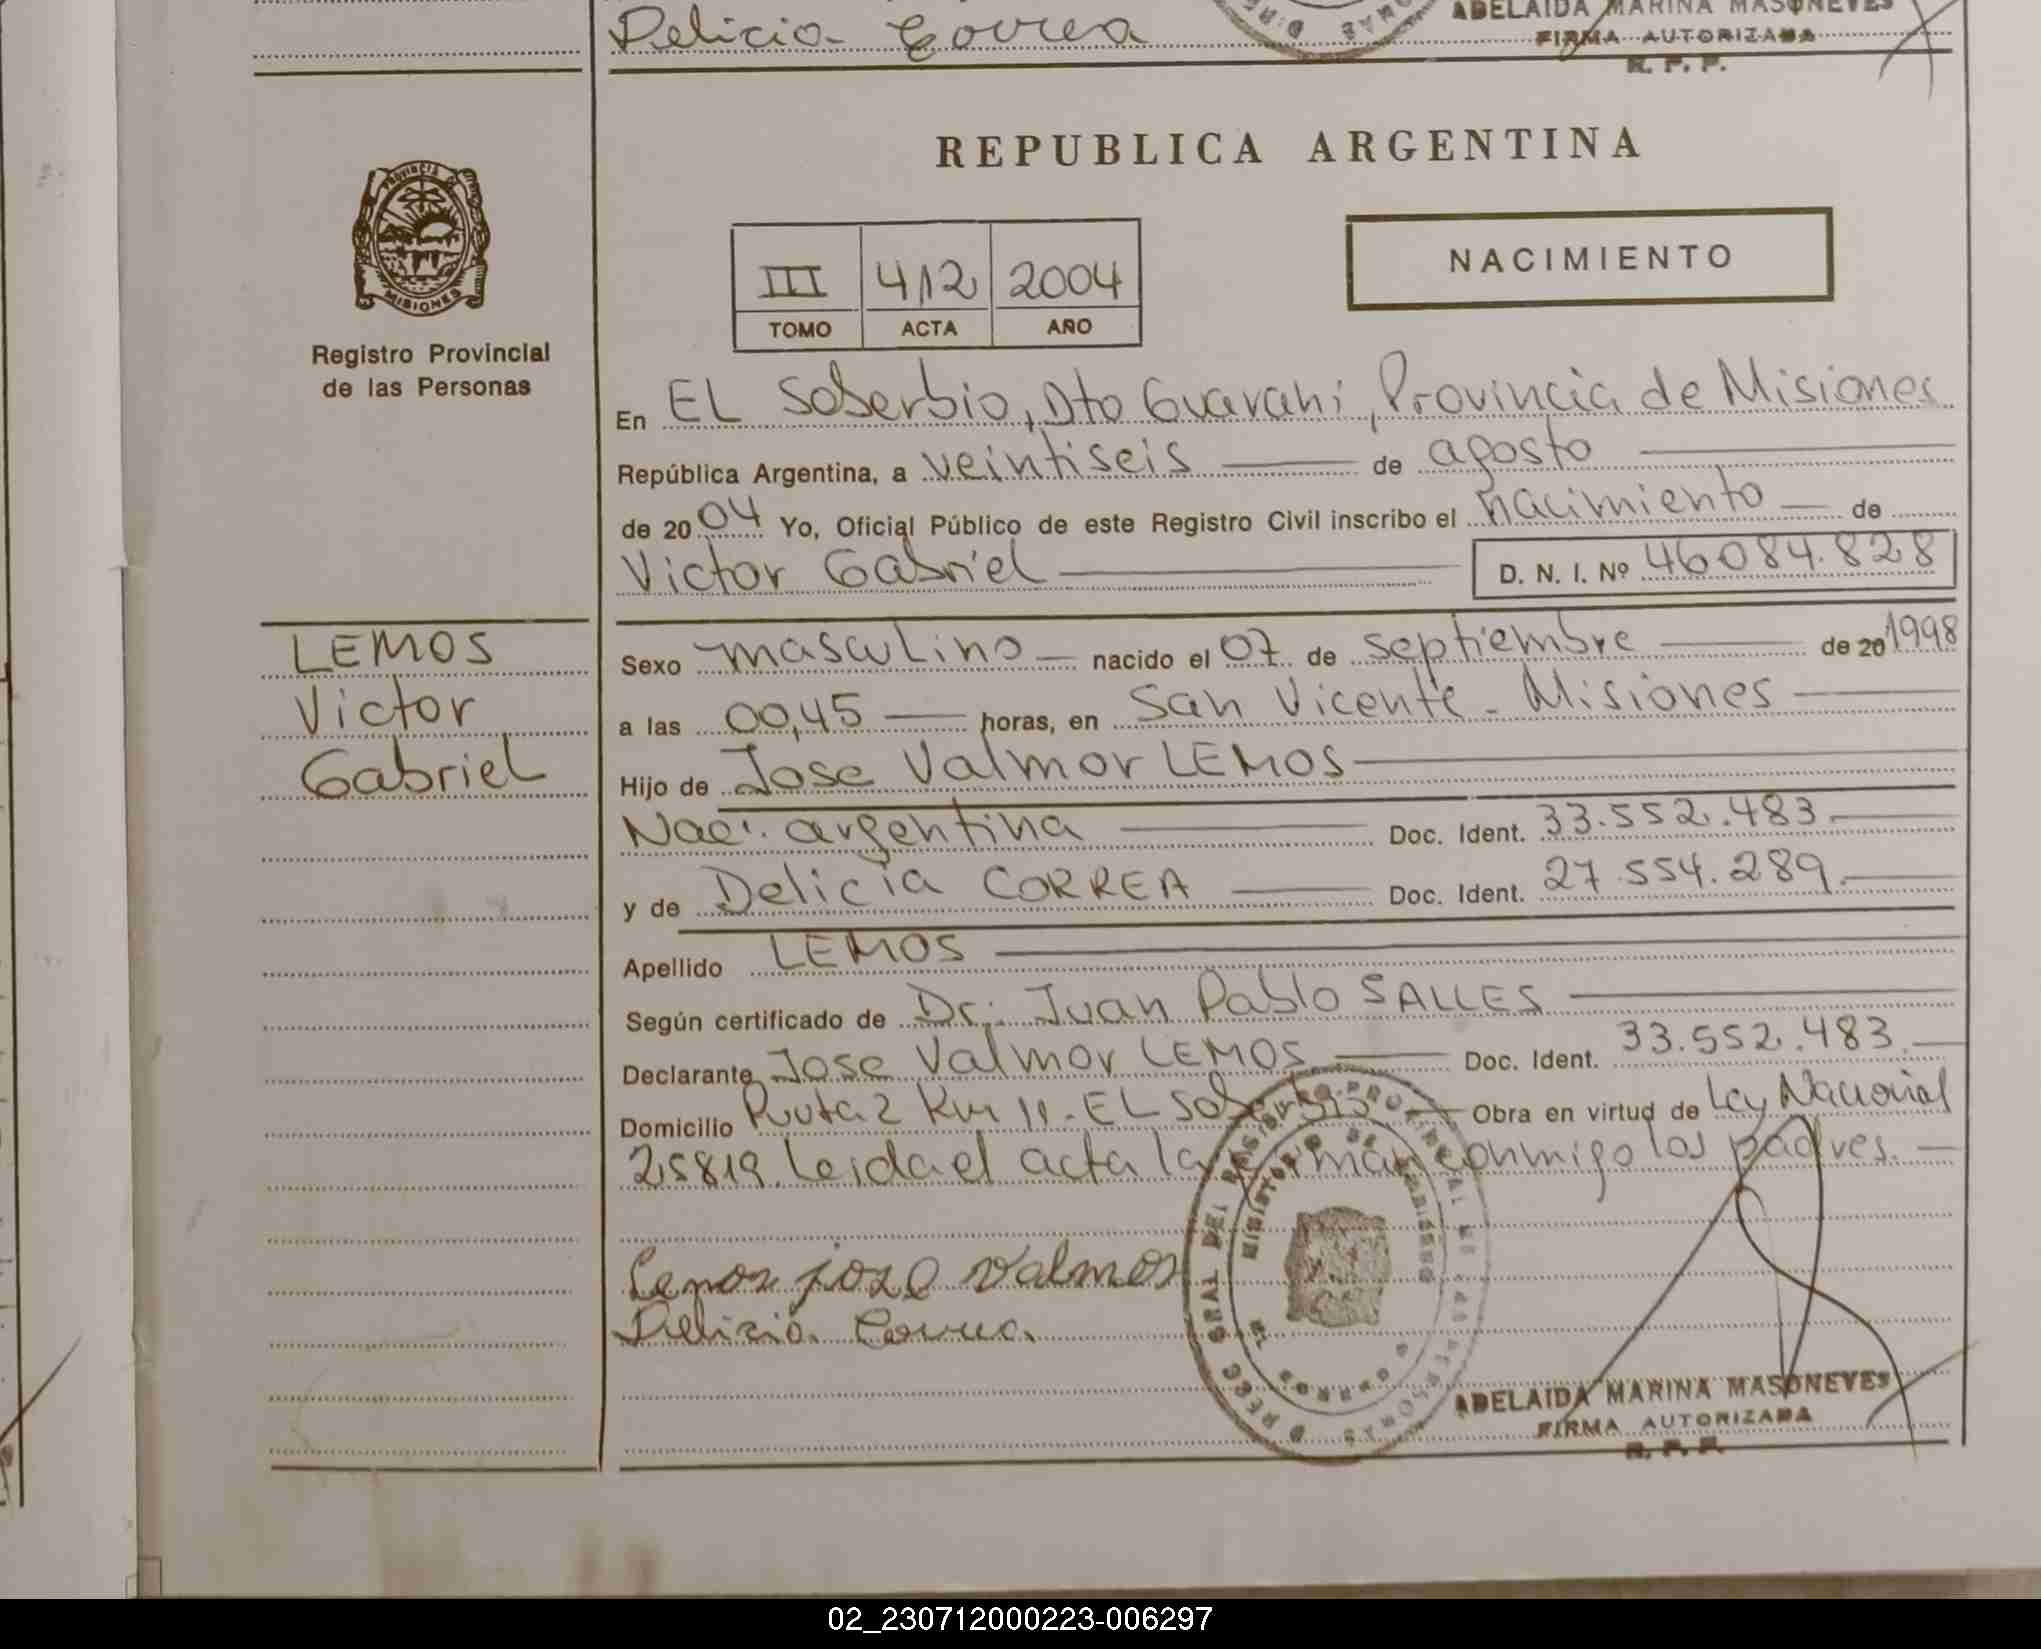 Delicia Correa
ADELAIDA MARINA MASONEVES
FIRMA AUTORIZADA
R. P. P.
PROVINCIA DE
MISIONES
Registro Provincial
de las Personas
REPUBLICA ARGENTINA
III 412 2004
TOMO ACTA AÑO
NACIMIENTO
En EL Soberbio, Dto Guarani, Provincia de Misiones
República Argentina, a veintiseis de agosto
de 2004 Yo, Oficial Público de este Registro Civil inscribo el nacimiento de
Victor Gabriel D. N. I. Nº 46084.828
LEMOS
Victor
Gabriel
Sexo masculino nacido el 07 de septiembre de 20 1998
a las 00,45 horas, en San Vicente - Misiones
Hijo de Jose Valmor LEMOS
Nac: argentina Doc. Ident. 33.552.483
y de Delicia CORREA Doc. Ident. 27.554.289
Apellido LEMOS
Según certificado de Dr: Juan Pablo SALLES
Declarante Jose Valmor LEMOS Doc. Ident. 33.552.483
Domicilio Ruta 2 Km 11 - EL Soberbio Obra en virtud de Ley Nacional
25819. Leida el acta la firman conmigo los padres.
Lemos joze Valmor
Delizia Correa
DIREC GRAL DEL REGISTRO PROVINCIAL DE LAS PERSONAS
ADELAIDA MARINA MASONEVES
FIRMA AUTORIZADA
R. P. P.
02_230712000223-006297